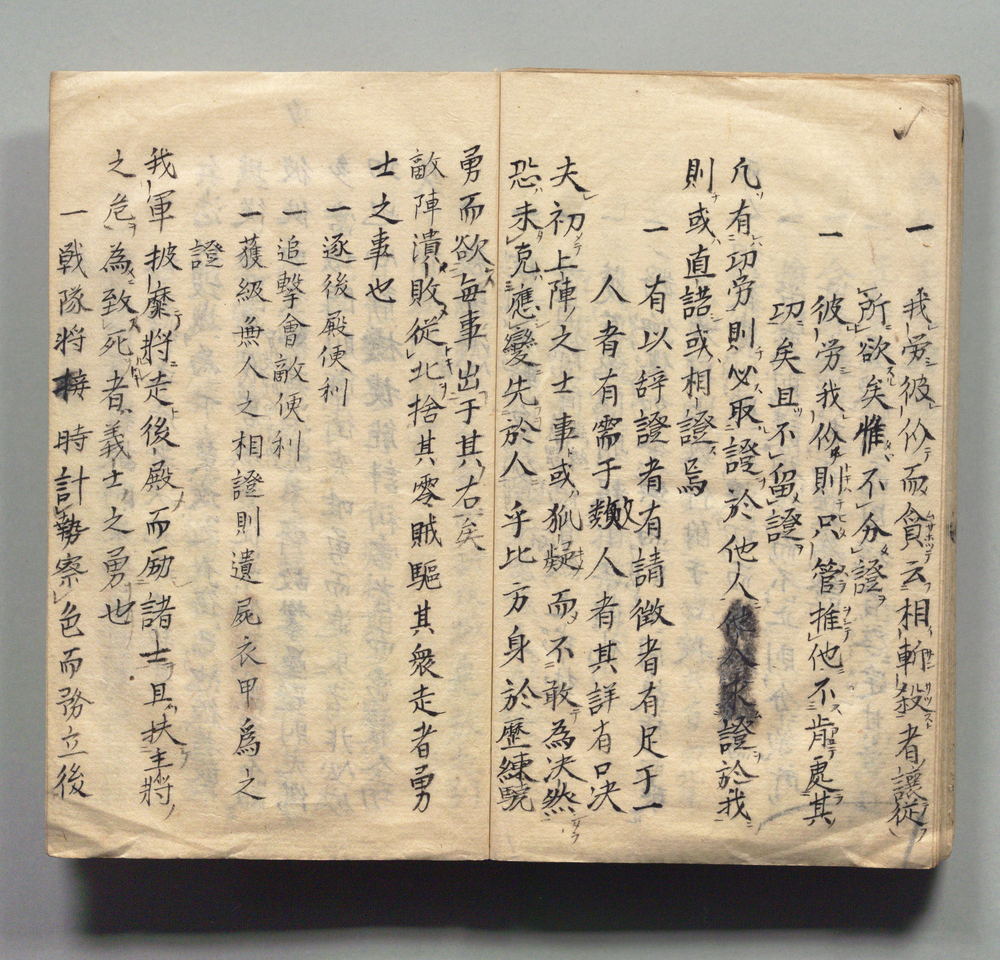 一
我労彼伱而貪云相斬殺者讓従
所欲矣惟不分證
一
彼労我伱則只管推他不肯處其
功矣且不留證
凡有功労則必取證於他人證於我
則或直諾或相證焉
一
有以辞證者有請徴者有足于一
人者有需于數人者其詳有口决
夫初上陣之士事或狐疑而不敢為决然
恐未克應變先於人乎比方身於歴練驍
勇而欲毎事出于其右矣
敵陣潰敗従北捨其零賊驅其衆走者勇
士之事也
一逐後殿便利
一追擊會敵便利
一獲級無人之相證則遺屍衣甲爲之
證
我軍披靡將走後殿而励諸士且扶主將
之危為致死者義士之勇也
一戦隊将 時計勢察色而務立後